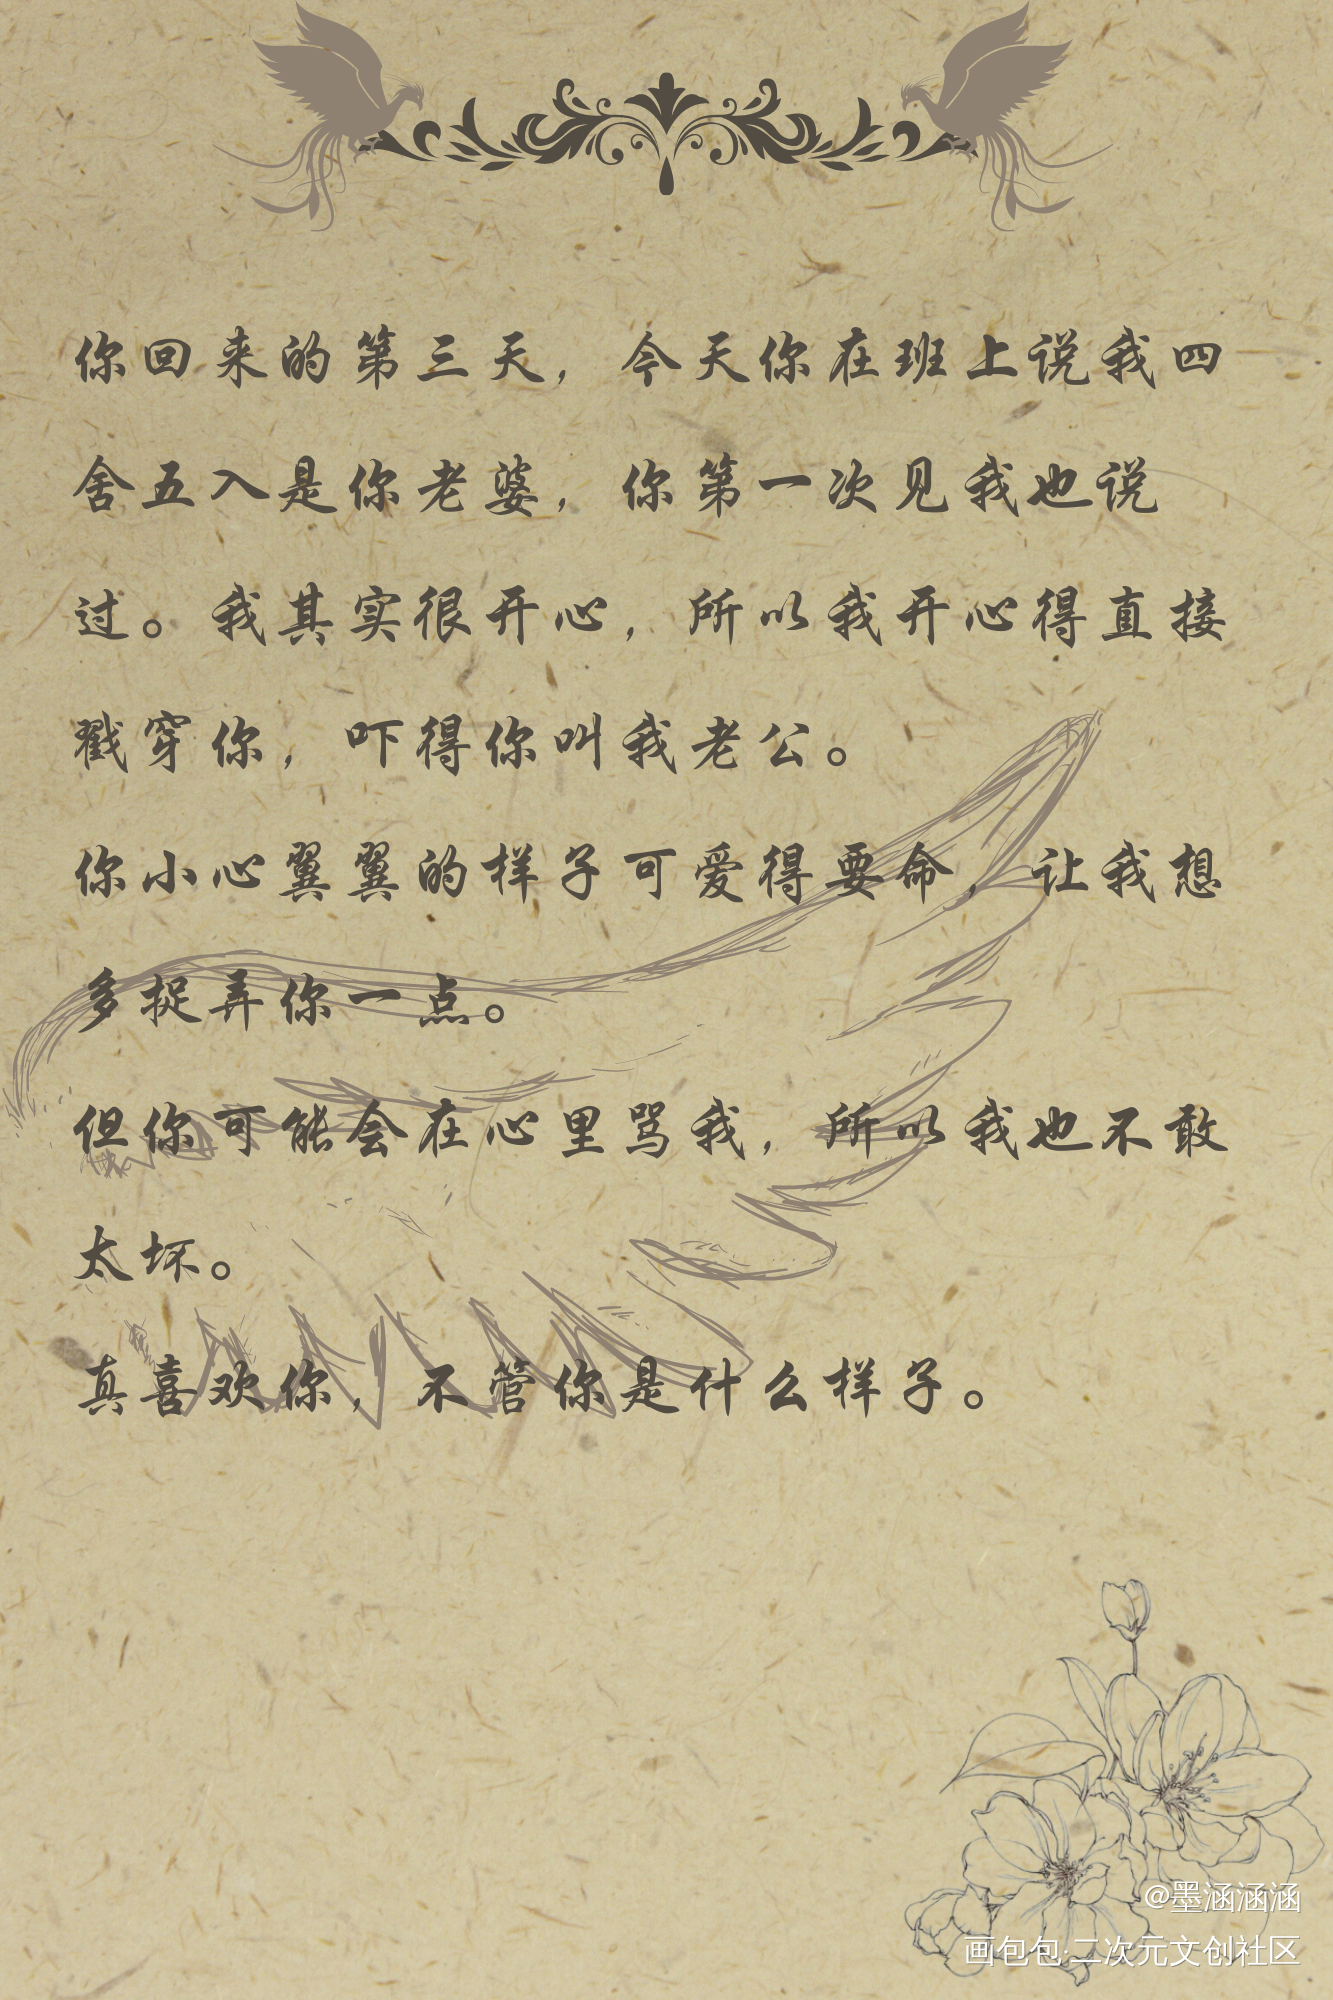 你回来的第三天，今天你在班上说我四
舍五入是你老婆，你第一次见我也说
过。我其实很开心，所以我开心得直接
戳穿你，吓得你叫我老公。
你小心翼翼的样子可爱得要命，让我想
多捉弄你一点。
但你可能会在心里骂我，所以我也不敢
太坏。
真喜欢你，不管你是什么样子。
@墨涵涵涵
画包包·二次元文创社区